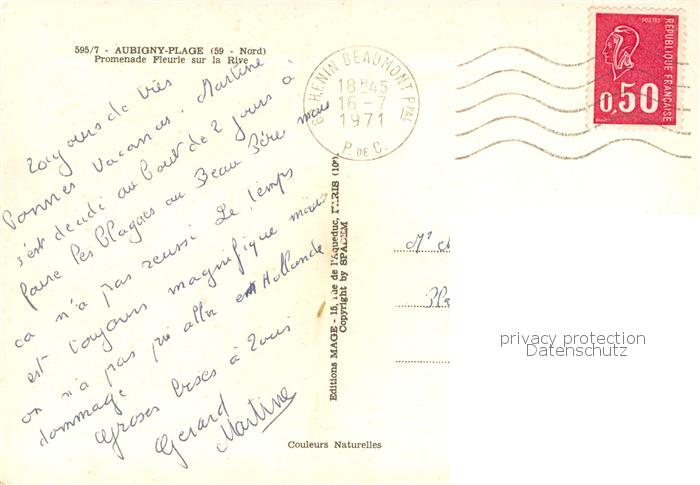 595/7 - AUBIGNY-PLAGE (59 - Nord)
Promenade Fleurie sur la Rive
62 HENIN BEAUMONT PPAL
18H45
16-7
1971
P. DE C.
POSTES
REPUBLIQUE FRANÇAISE
0,50
toujours de très
bonnes vacances. Martine
s'est decidé au bout de 2 jours à
faire les blagues au Beau Père mais
ca n'a pas reussi Le temps
est toujours magnifique mais
on n'a pas pu aller en Hollande
dommage
Grosses bises à tous
Gerard
Martine
Editions MAGE - 15, rue de l'Aqueduc, PARIS (10e)
Copyright by SPADEM
Mr
privacy protection
Datenschutz
Couleurs Naturelles